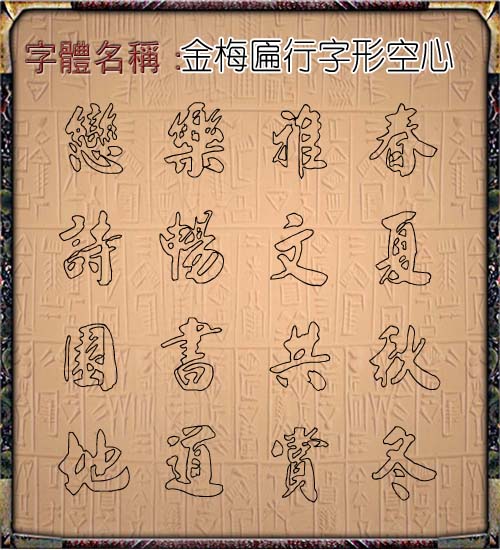 字體名稱 :金梅匾行字形空心
春夏秋冬
雅文共賞
樂暢書道
戀詩園地